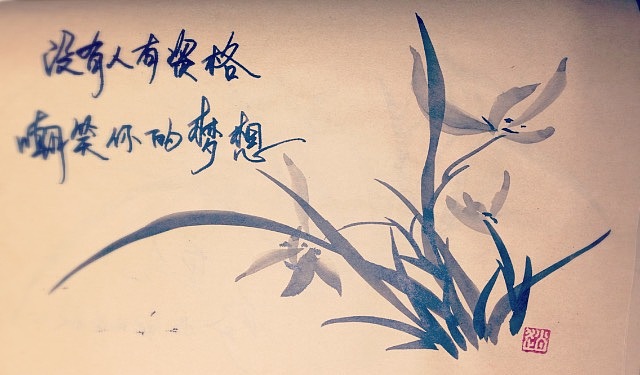 没有人有资格
嘲笑你的梦想